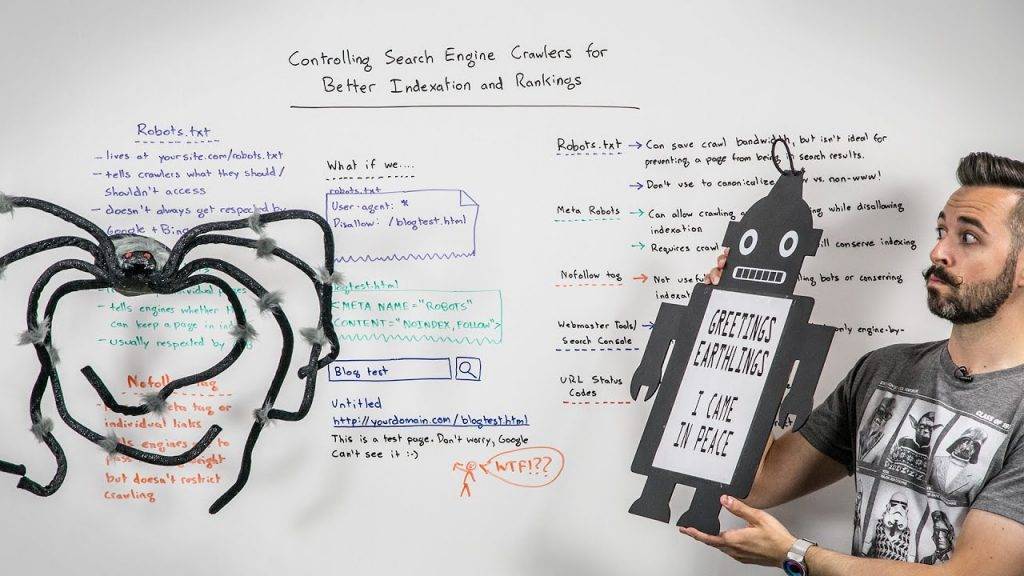 Controlling Search Engine Crawlers for
Better Indexation and Rankings
Robots.txt
- lives at yoursite.com/robots.txt
- tells crawlers what they should/
shouldn't access
- doesn't always get respected by
Google + Bing
pages
- tells engines whether
can keep a page in
- usually respected by
Nofollow tag
tag or
individual links
engines
but doesn't restrict
crawling
What if we....
robots.txt
User-agent: *
Disallow: /blogtest.html
blogtest.html
<META NAME="ROBOTS"
CONTENT="NOINDEX, FOLLOW">
Blog test
Untitled
http://yourdomain.com/blogtest.html
This is a test page. Don't worry, Google
Can't see it :-)
WTF!??
Robots.txt → Can save crawl bandwidth, but isn't ideal for
preventing a page from being in search results.
→ Don't use to canonicalize vs. non-www!
Meta Robots → Can allow crawling while disallowing
indexation
→ Requires crawl conserve indexing
Nofollow tag → Not bots or conserving
Webmaster Tools/ → only engine-by-
Search Console
URL Status
Codes
GREETINGS
EARTHLINGS
I CAME
IN PEACE